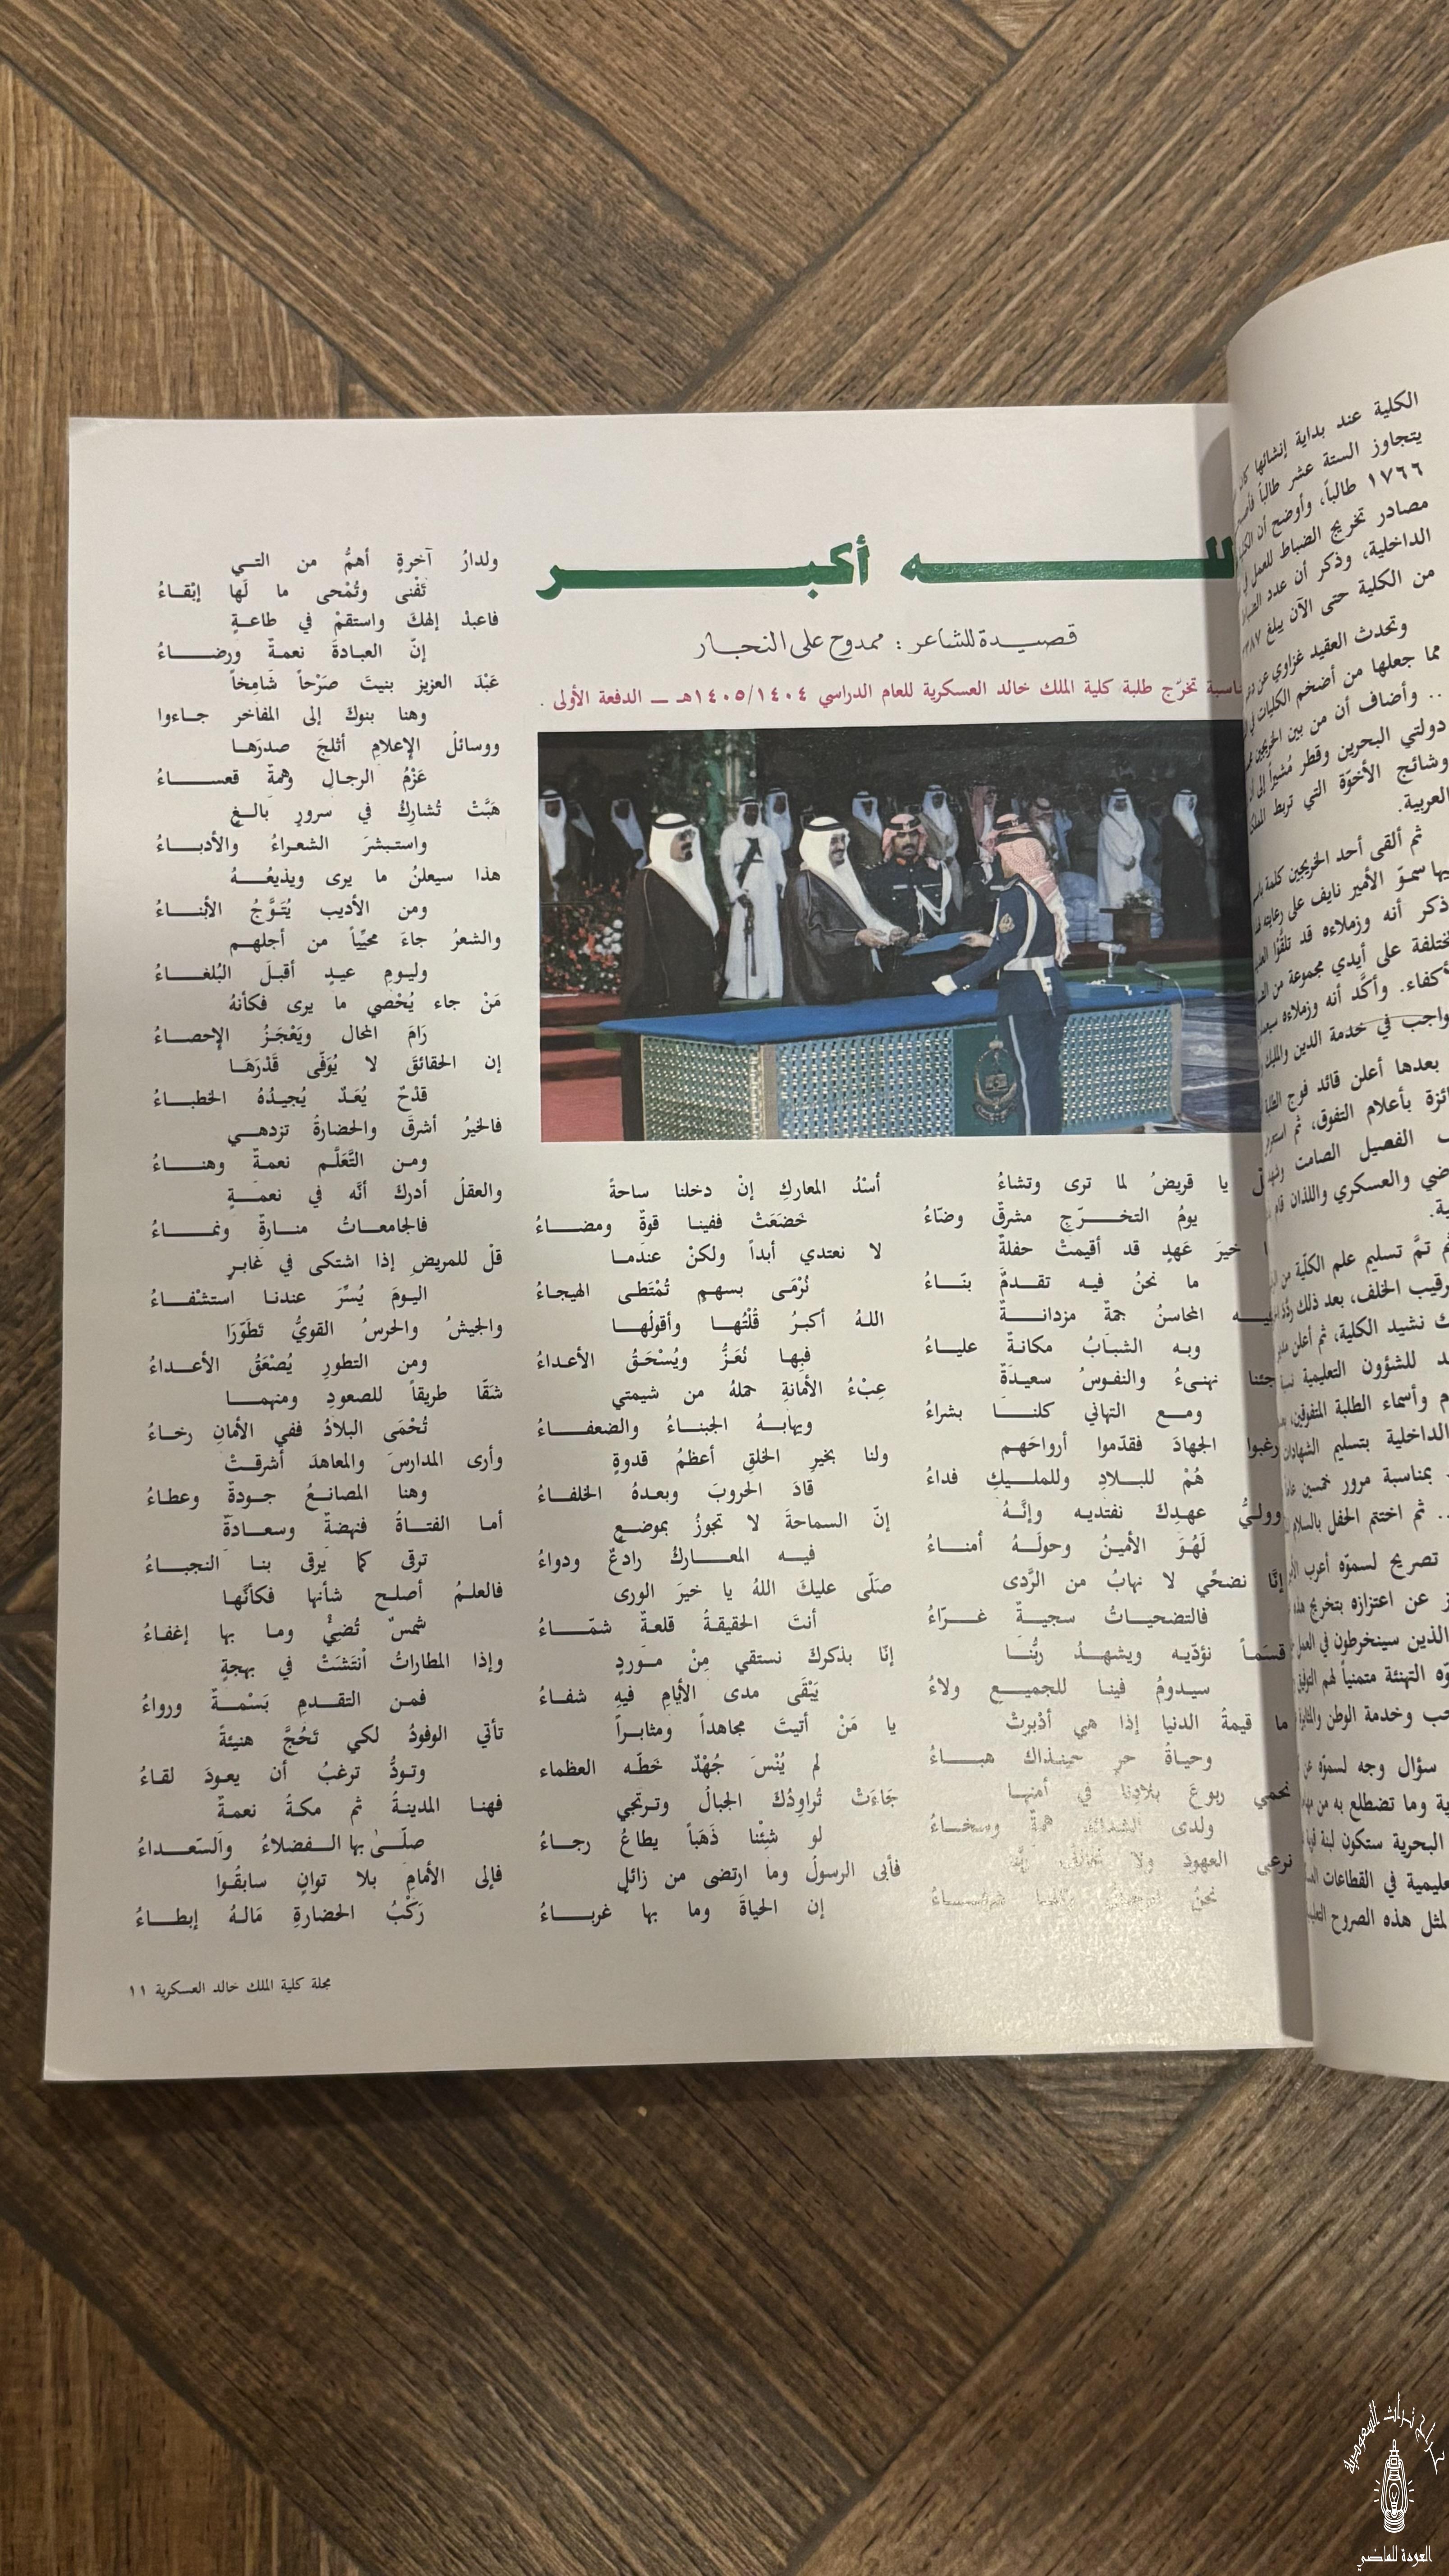 الكلية عند بداية إنشائها كان
يتجاوز الستة عشر طالباً
١٧٦٦ طالباً، وأوضح أن
مصادر تخريج الضباط للعمل
الداخلية، وذكر أن عدد
من الكلية حتى الآن يبلغ
وتحدث العقيد غزاوي عن
مما جعلها من أضخم الكليات في
.. وأضاف أن من بين الخريجين
دولتي البحرين وقطر مُشيراً إلى
وشائج الأخوّة التي تربط
العربية.
ثم ألقى أحد الخريجين كلمة
فيها سموّ الأمير نايف على رعايته
ذكر أنه وزملاءه قد تلقّوا
مختلفة على أيدي مجموعة من
أكفاء. وأكّد أنه وزملاءه
واجب في خدمة الدين والمليك
بعدها أعلن قائد فوج
بأعلام التفوق، ثم
الفصيل الصامت
والعسكري واللذان قام
تمَّ تسليم علم الكلّية من
رقيب الخلف، بعد ذلك
نشيد الكلية، ثم أعلن
للشؤون التعليمية
وأسماء الطلبة المتفوقين،
الداخلية بتسليم الشهادات
بمناسبة مرور خمسين
.. ثم اختتم الحفل بالسلام
تصريح لسموّه أعرب
عن اعتزازه بتخريج هذه
الذين سينخرطون في العمل
التهنئة متمنياً لهم التوفيق
وخدمة الوطن
سؤال وجه لسموّه عن
وما تضطلع به من
البحرية ستكون لبنة
تعليمية في القطاعات
لمثل هذه الصروح
لله أكبر
قصيدة للشاعر : ممدوح علي النجار
تخرّج طلبة كلية الملك خالد العسكرية للعام الدراسي ١٤٠٥/١٤٠٤هـ — الدفعة الأولى .
يا قريضُ لما ترى وتشاءُ
يومُ التخرّجِ مشرقٌ وضّاءُ
خيرَ عَهدٍ قد أقيمتْ حفلةٌ
ما نحنُ فيه تقدمٌ بنّاءُ
المحاسنُ جمةٌ مزدانةٌ
وبه الشبابُ مكانةٌ علياءُ
جئنا نهنىءُ والنفوسُ سعيدَةٌ
ومع التهاني كلنا بشراءُ
رغبوا الجهادَ فقدّموا أرواحَهم
هُمْ للبلادِ وللمليكِ فداءُ
ووليُّ عهدِكَ نفتديه وإنَّهُ
لَهُوَ الأمينُ وحولَهُ أمناءُ
إنَّا نضحِّي لا نهابُ من الرَّدى
فالتضحياتُ سجيةٌ غرّاءُ
قسَماً نؤدّيه ويشهدُ ربُّنا
سيدومُ فينا للجميعِ ولاءُ
ما قيمةُ الدنيا إذا هي أدْبرتْ
وحياةُ حرٍ حينذاك هباءُ
نحمي ربوعَ بلادِنا في أمنِها
ولدى الشدائدِ همةٌ وسخاءُ
نرعى العهودَ ولا
نحنُ
أسْدُ المعاركِ إنْ دخلنا ساحةً
خَضَعَتْ ففينا قوةٌ ومضاءُ
لا نعتدي أبداً ولكنْ عندَما
نُرْمَى بسهمٍ تُمْتَطى الهيجاءُ
اللهُ أكبرُ قُلْتُها وأقولُها
فبِها نُعَزُّ ويُسْحَقُ الأعداءُ
عِبْءُ الأمانةِ حملهُ من شيمتي
ويهابهُ الجبناءُ والضعفاءُ
ولنا بخيرِ الخلقِ أعظمُ قدوةٍ
قادَ الحروبَ وبعدهُ الخلفاءُ
إنّ السماحةَ لا تجوزُ بموضعٍ
فيه المعاركُ رادعٌ ودواءُ
صَلّى عليكَ اللهُ يا خيرَ الورى
أنتَ الحقيقةُ قلعةٌ شمّاءُ
إنّا بذكركَ نستقي مِنْ موردٍ
يَبْقَى مدى الأيامِ فيهِ شفاءُ
يا مَنْ أتيتَ مجاهداً ومثابراً
لم يُنْسَ جُهْدٌ خَطّه العظماء
جَاءَتْ تُراوِدُكَ الجبالُ وترتجي
لو شِئْنا ذَهَباً يطاعُ رجاءُ
فأبى الرسولُ وما ارتضى من زائلٍ
إن الحياةَ وما بها غرباءُ
ولدارُ آخرةٍ أهمُّ من التي
تَفْنى وتُمْحى ما لَها إبْقاءُ
فاعبدْ إلهكَ واستقمْ في طاعةٍ
إنّ العبادةَ نعمةٌ ورضاءُ
عَبْدَ العزيز بنيتَ صَرْحاً شَامِخاً
وهنا بنوكَ إلى المفاخر جاءوا
ووسائلُ الإعلامِ أثلجَ صدرَها
عَزْمُ الرجالِ وهمةٌ قعساءُ
هَبَّتْ تُشارِكُ في سرورٍ بالغٍ
واستبشرَ الشعراءُ والأدباءُ
هذا سيعلنُ ما يرى ويذيعُهُ
ومن الأديب يُتَوَّجُ الأبناءُ
والشعرُ جاءَ محيِّياً من أجلهم
وليومِ عيدٍ أقبلَ البُلغاءُ
مَنْ جاء يُحْصي ما يرى فكأنهُ
رَامَ المحال ويَعْجَزُ الإحصاءُ
إن الحقائقَ لا يُوَفّى قَدْرَهَا
قدْحٌ يُعَدّ يُجيدُهُ الخطباءُ
فالخيرُ أشرقَ والحضارةُ تزدهي
ومن التَّعَلَّم نعمةٌ وهناءُ
والعقلُ أدركَ أنَّه في نعمةٍ
فالجامعاتُ منارةٌ ونماءُ
قلْ للمريضِ إذا اشتكى في غابرٍ
اليومَ يُسِّرَ عندنا استشْفاءُ
والجيشُ والحرسُ القويُّ تَطَوّرَا
ومن التطورِ يُصْعَقُ الأعداءُ
شَقّا طريقاً للصعودِ ومنهما
تُحْمَى البلادُ ففي الأمانِ رخاءُ
وأرى المدارسَ والمعاهدَ أشرقتْ
وهنا المصانعُ جودةٌ وعطاءُ
أما الفتاةُ فنهضةٌ وسعادَةٌ
ترقى كما يرقى بنا النجباءُ
فالعلمُ أصلح شأنها فكأنَّها
شمسٌ تُضيُْ وما بها إغفاءُ
وإذا المطاراتُ أنْتَشَتْ في بهجةٍ
فمن التقدمِ بَسْمةٌ ورواءُ
تأتي الوفودُ لكي تَحُجَّ هنيئةً
وتودُّ ترغبُ أن يعودَ لقاءُ
فهنا المدينةُ ثم مكةُ نعمةٌ
صلّىٰ بها الفضلاءُ والسّعداءُ
فإلى الأمامِ بلا توانٍ سابقُوا
رَكْبُ الحضارةِ مَالهُ إبطاءُ
مجلة كلية الملك خالد العسكرية ١١
العودة للماضي